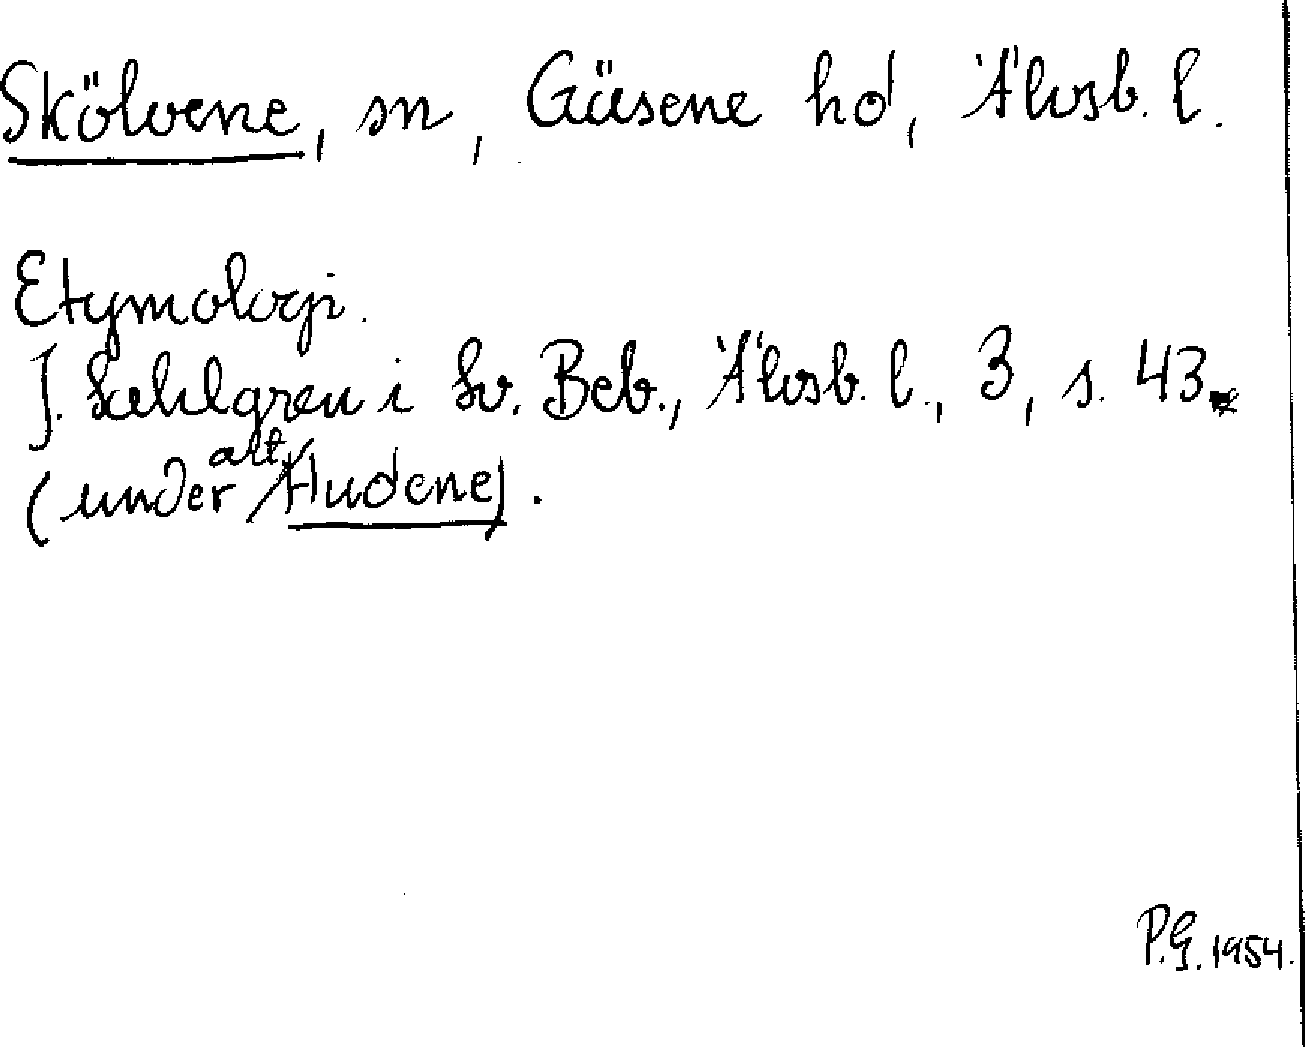 Skölvene, sn, Gäsene hd, Älvsb. l.
Etymologi.
J. Sahlgren i Sv. Beb., Älvsb. l., 3, s. 43.
(under art. Hudene).
P.G. 1954.